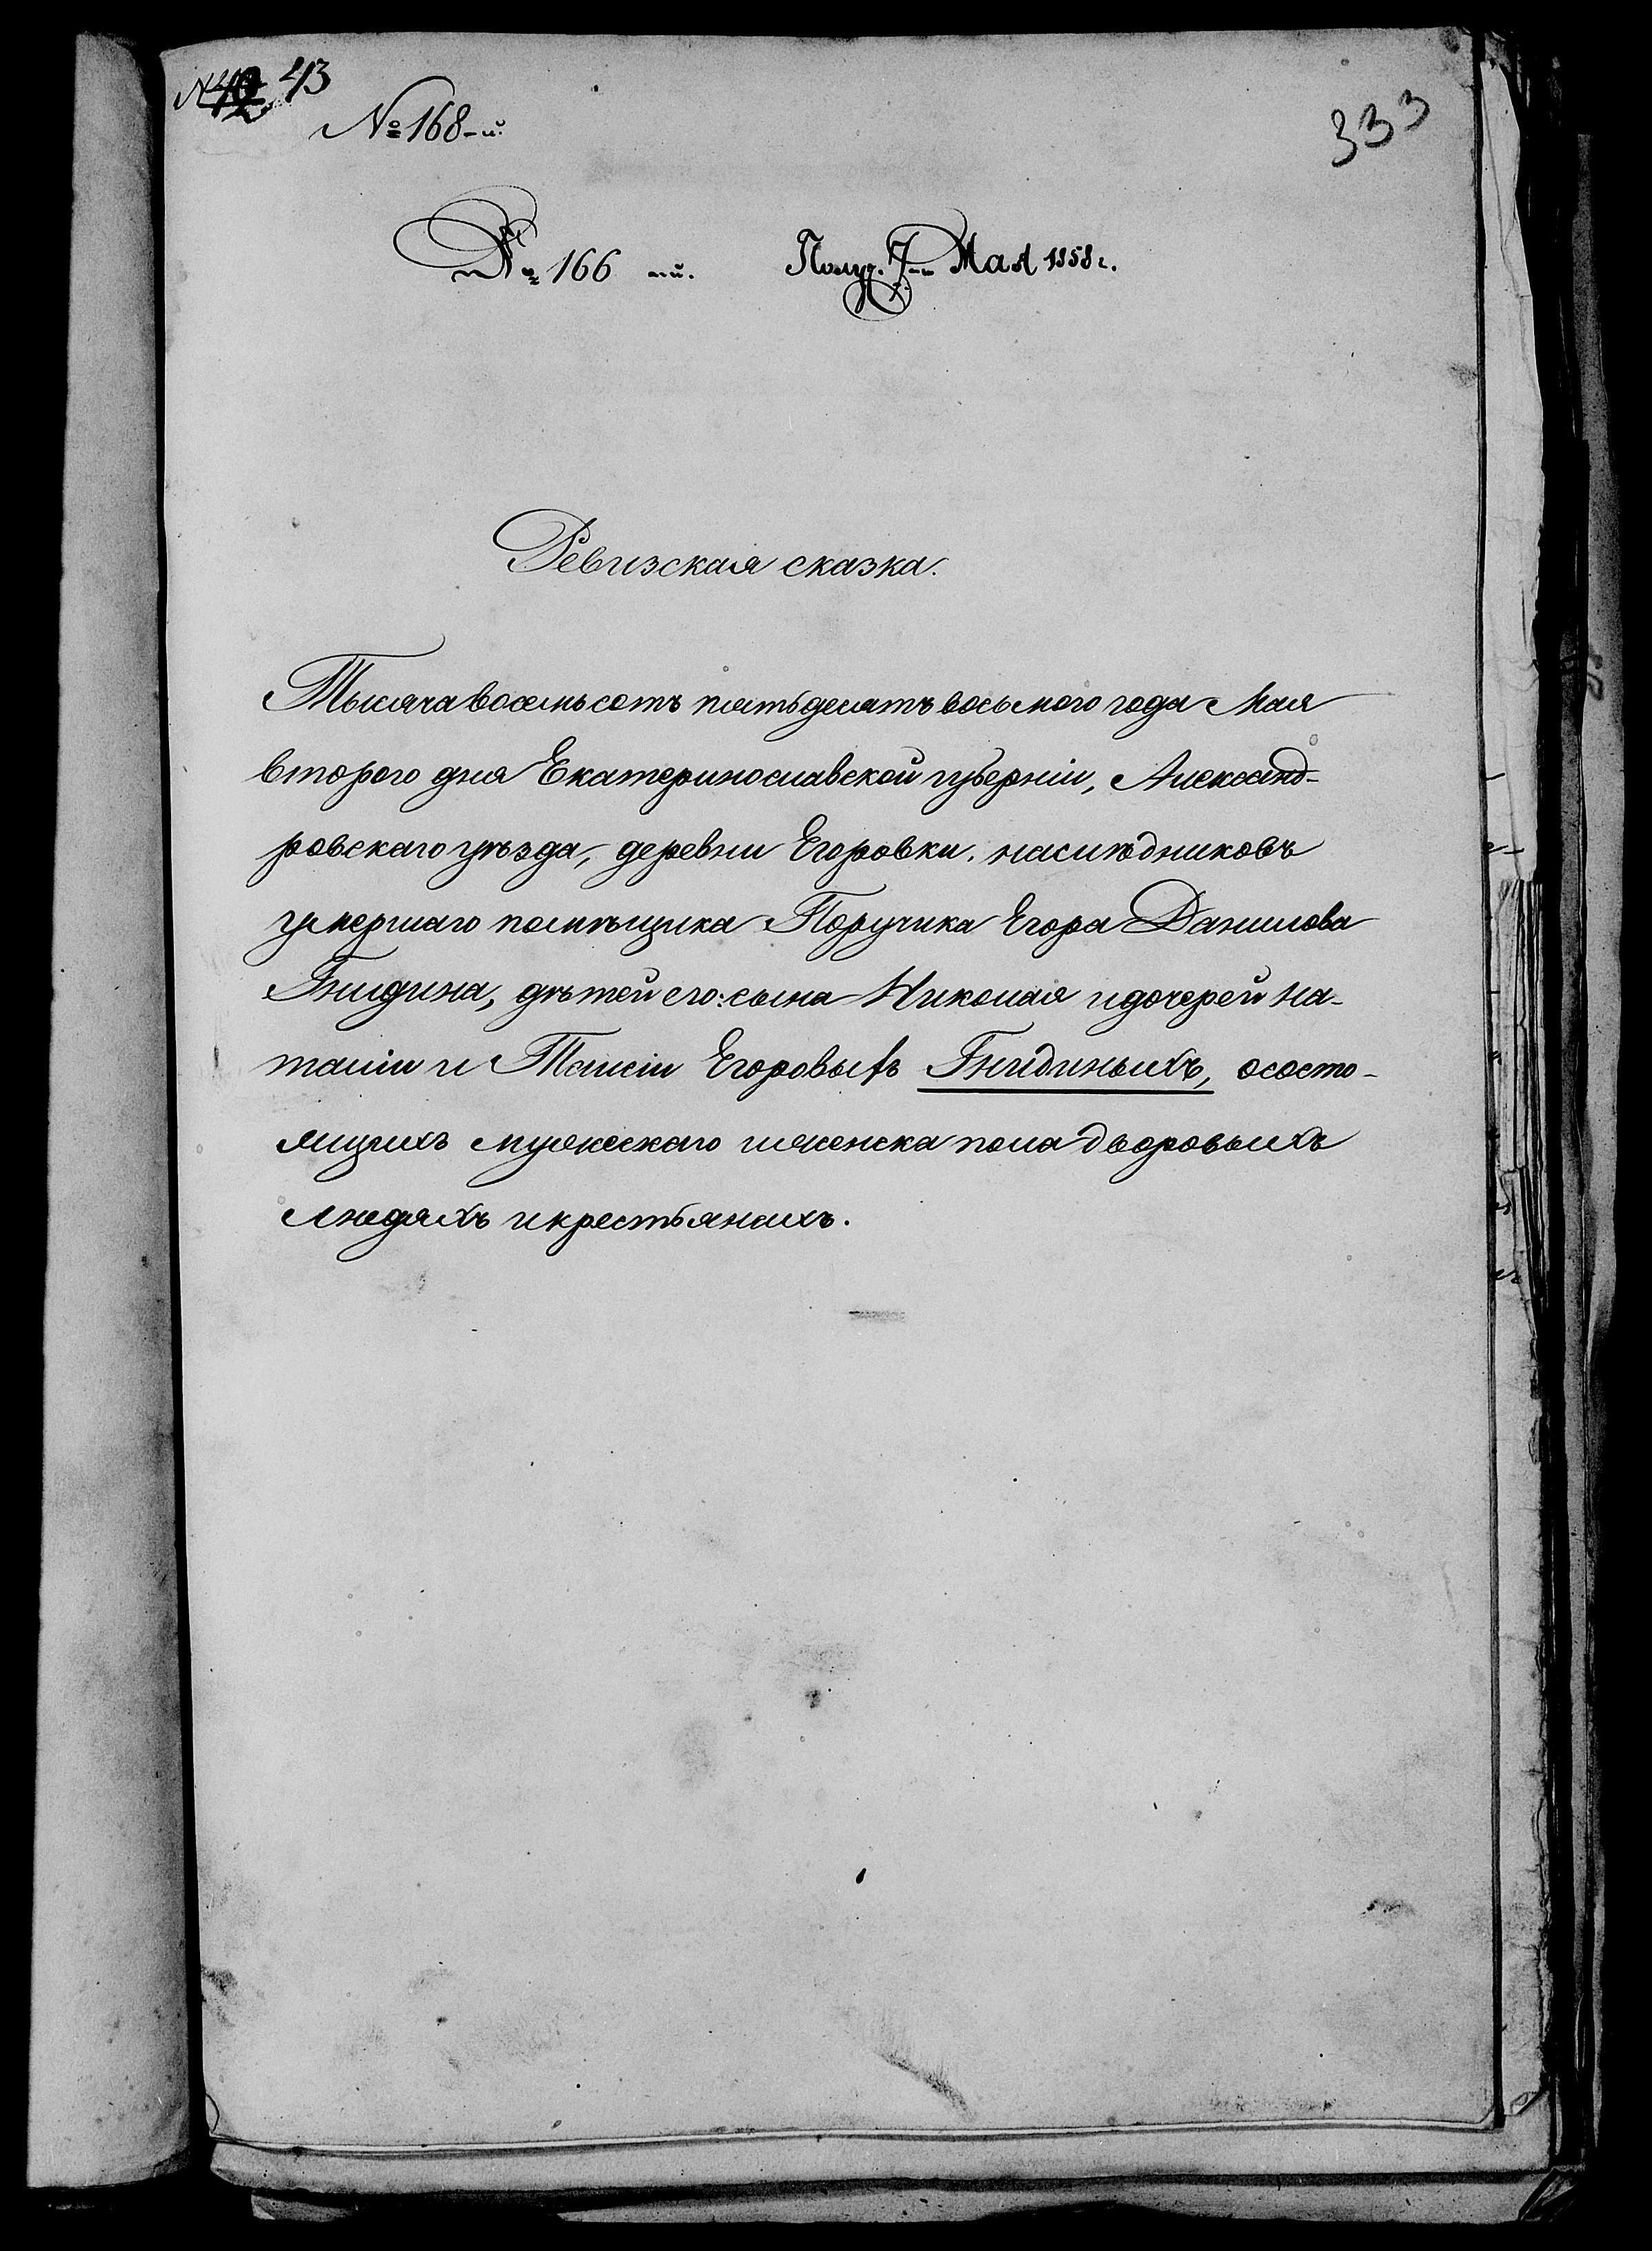 43
№ 168-й.
333
№ 166 -й. Получ. 7-го Мая 1858 г.
Ревизская сказка.
Тысяча восемьсотъ пятьдесятъ восьмого года Мая
второго дня Екатеринославской губерніи, Александ-
ровскаго уѣзда, деревни Егоровки. наслѣдниковъ
умершаго помѣщика Поручика Егора Данилова
Гнидина, дѣтей его: сына Николая и дочерей На-
таліи и Таисіи Егоровыхъ Гнидиныхъ, о состо-
ящихъ мужескаго и женска пола дворовыхъ
людяхъ и крестьянахъ.